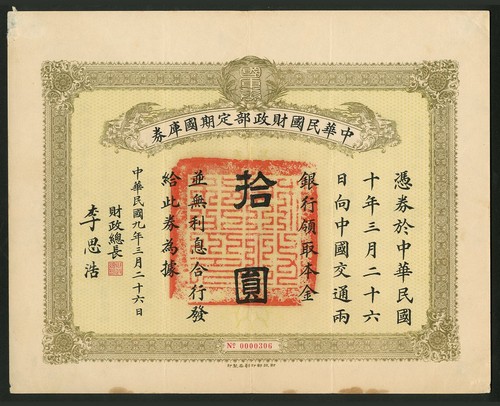 中華民國財政部定期國庫券
憑券於中華民國
十年三月二十六
日向中國交通兩
銀行領取本金
拾圓
並無利息合行發
給此券為據
中華民國九年三月二十六日
財政總長
李思浩
No 0000306
財政部印刷局製印